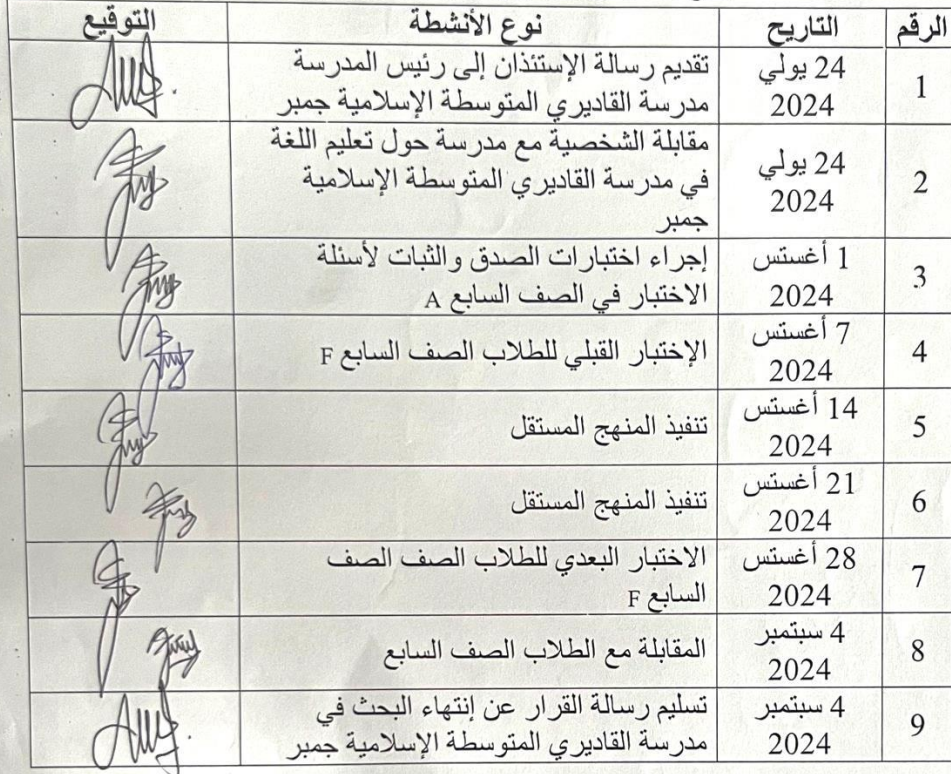 الرقم التاريخ نوع الأنشطة التوقيع
1 24 يولي 2024 تقديم رسالة الإستئذان إلى رئيس المدرسة
مدرسة القاديري المتوسطة الإسلامية جمبر
2 24 يولي 2024 مقابلة الشخصية مع مدرسة حول تعليم اللغة
في مدرسة القاديري المتوسطة الإسلامية
جمبر
3 1 أغستس 2024 إجراء اختبارات الصدق والثبات لأسئلة
الاختبار في الصف السابع A
4 7 أغستس 2024 الإختبار القبلي للطلاب الصف السابع F
5 14 أغستس 2024 تنفيذ المنهج المستقل
6 21 أغستس 2024 تنفيذ المنهج المستقل
7 28 أغستس 2024 الاختبار البعدي للطلاب الصف الصف
السابع F
8 4 سبتمبر 2024 المقابلة مع الطلاب الصف السابع
9 4 سبتمبر 2024 تسليم رسالة القرار عن إنتهاء البحث في
مدرسة القاديري المتوسطة الإسلامية جمبر